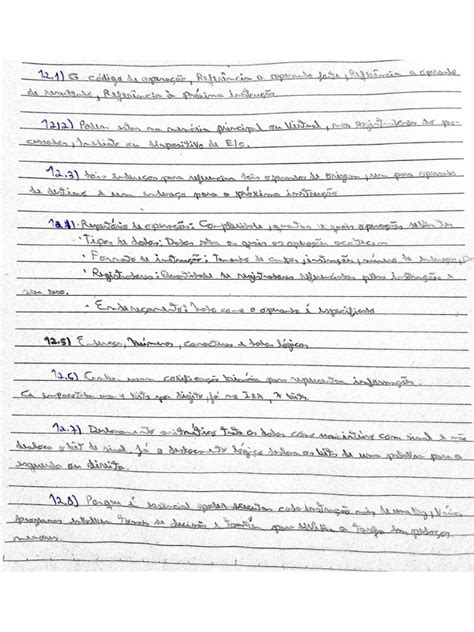 12.1) O código de operação, Referência a operando fonte, Referência a operando
de resultado, Referência à próxima instrução
12.2) Podem estar na memória principal ou virtual, nos registradores do pro-
cessador, Imediato ou dispositivo de E/S.
12.3) dois endereços para referenciar dois operandos de origem, um para operando
de destino e um endereço para a próxima instrução
12.4) • Repertório de operações: Complexidade, quantas e quais operações
• Tipos de dados: Dados sobre os quais as operações acontecem
• Formato de instrução: Tamanho de campos, instruções, número de endereços,
• Registradores: Quantidade de registradores referenciados pelas instruções e
seu uso.
• Endereçamento: Modo como o operando é especificado
12.5) Endereço, Números, caracteres e dados lógicos
12.6) Cada uma codificação binária para representar informação.
compactado usa 4 bits por dígito, já no IRA, 7 bits.
12.7) Deslocamento aritmético trata os dados como um inteiro com sinal e não
desloca o bit de sinal, já o deslocamento lógico desloca os bits de uma palavra para a
esquerda ou direita.
12.8) Porque é essencial poder executar cada instrução mais de uma vez,
programas envolvem de decisão e também para a em pedaços
menores.